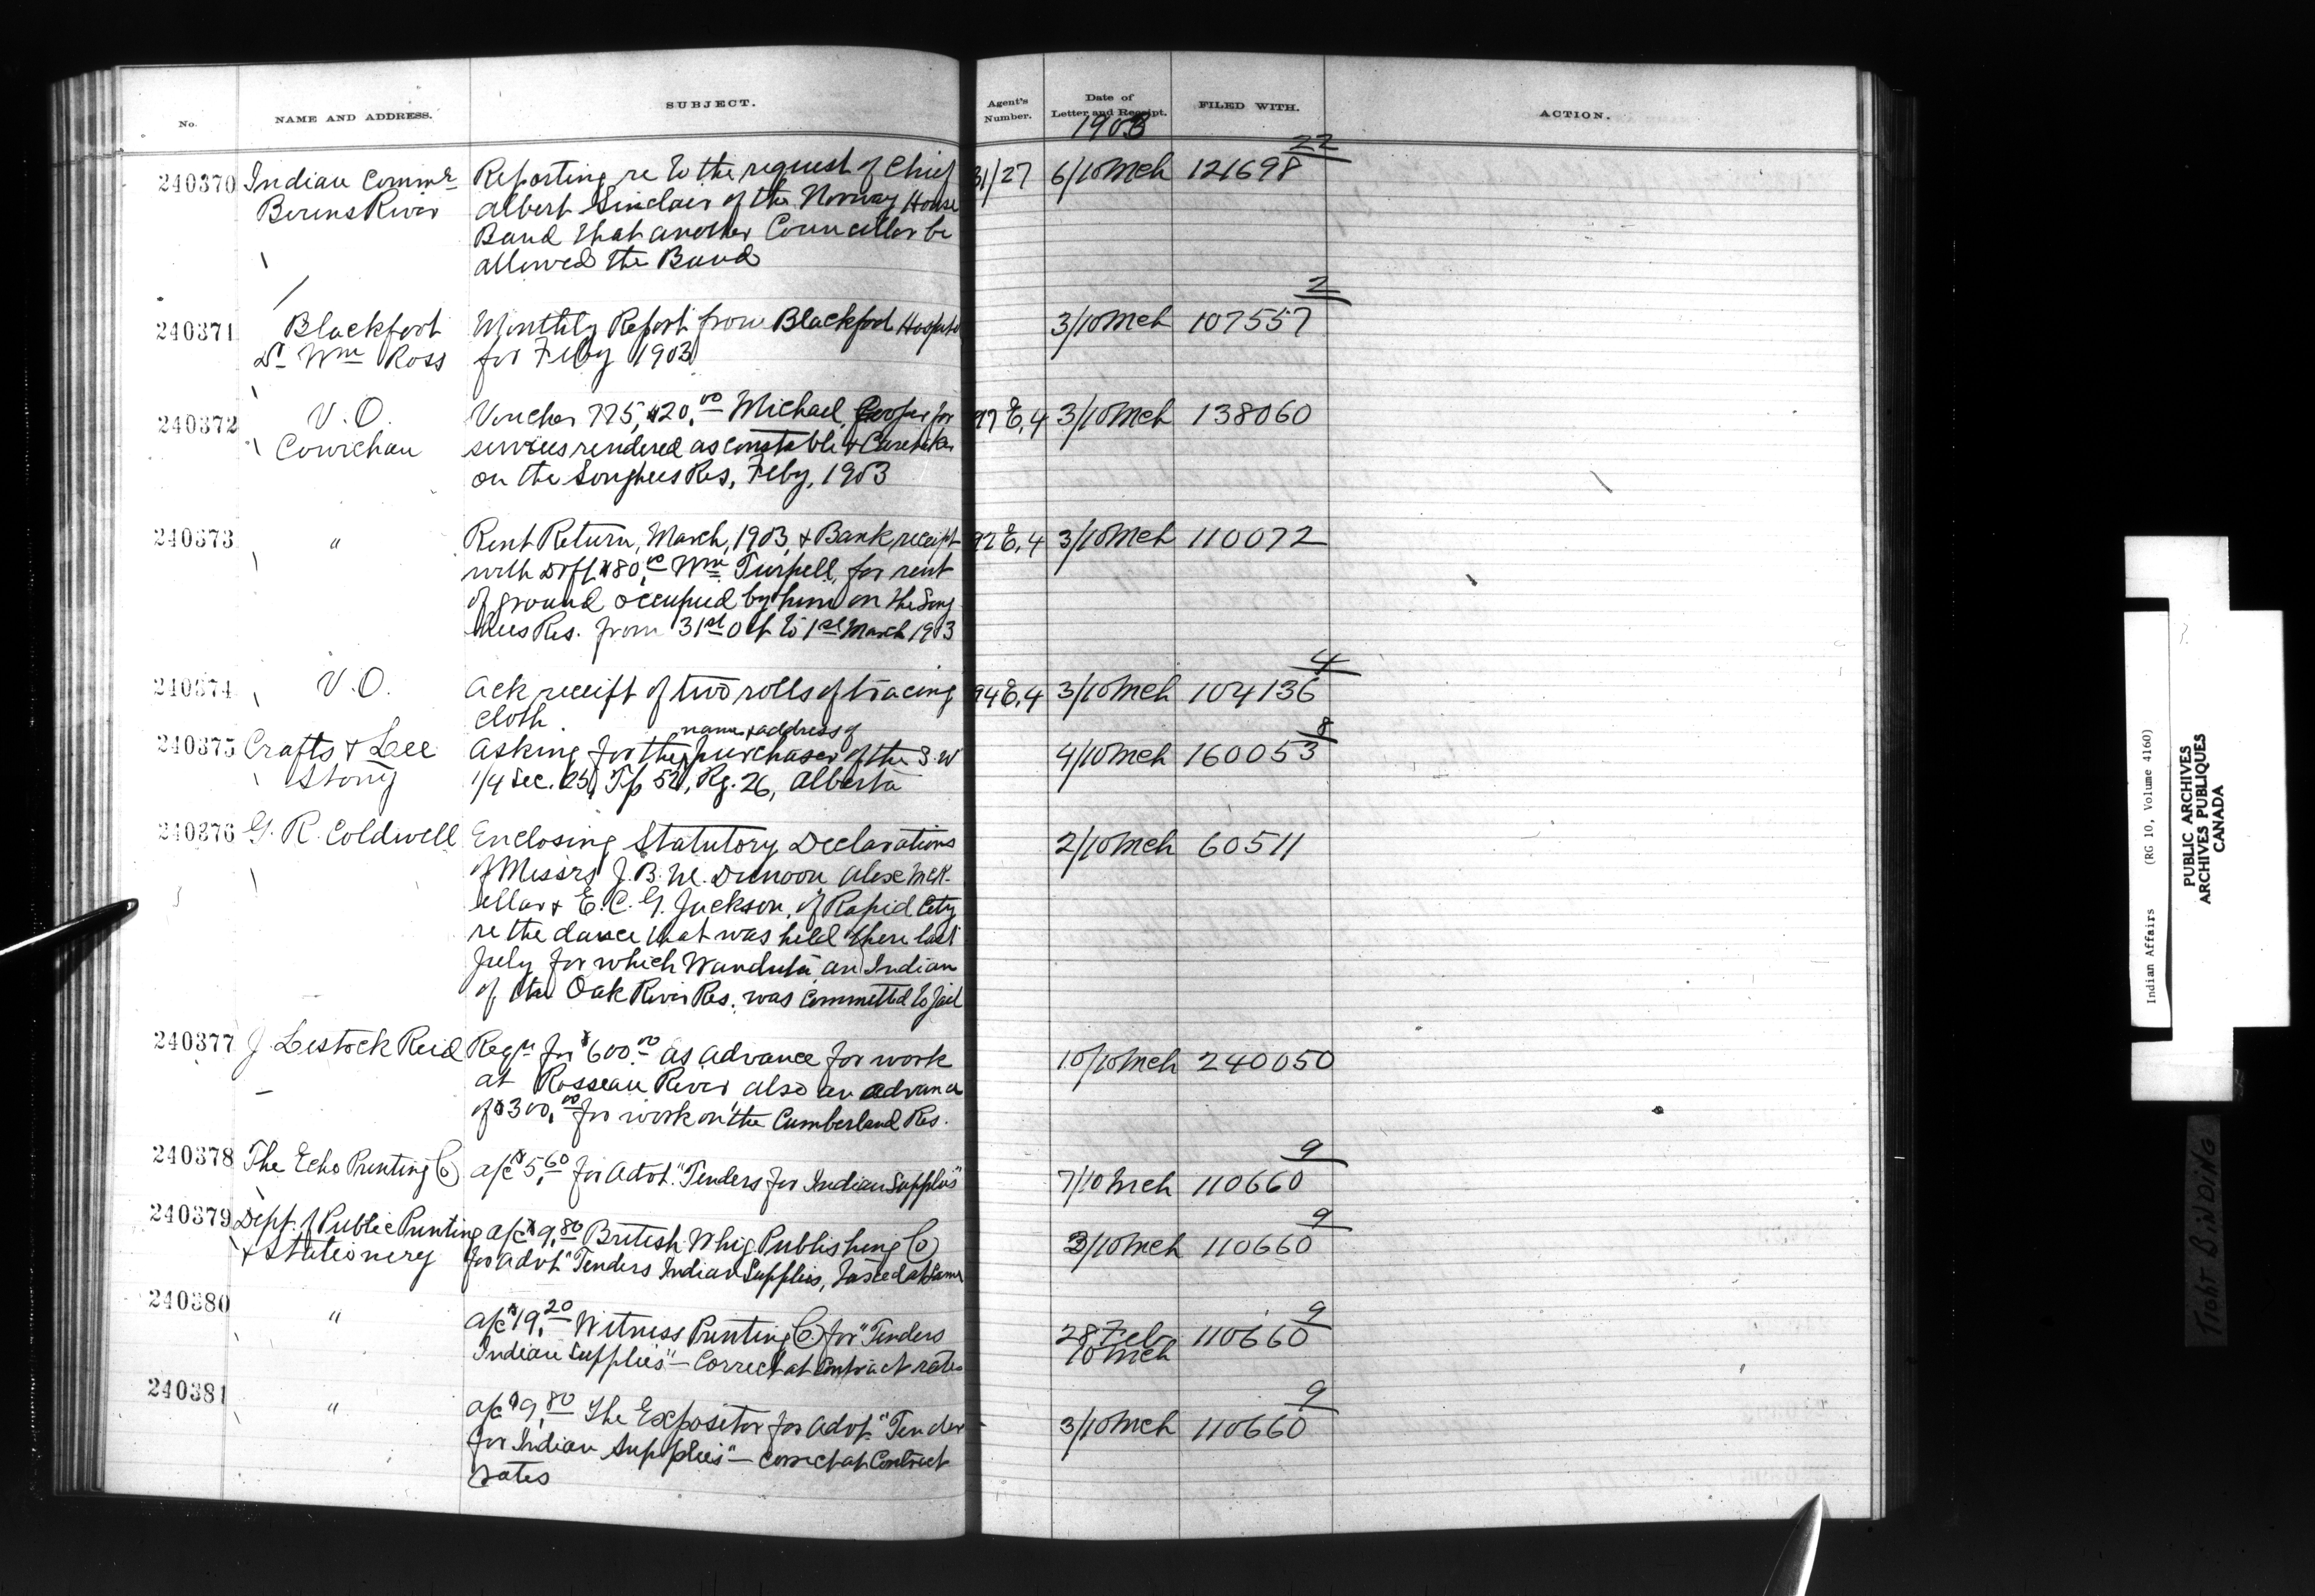 No.
NAME AND ADDRESS.
SUBJECT.
Agent's Number.
Date of Letter and Receipt.
FILED WITH.
ACTION.
1903
22
240370 Indian Commr Reporting re to the request of Chief 31/27 6/10 Mch 121698
Berens River Albert Sinclair of the Norway House
Band that another Councillor be
allowed the Band
2
240371 Blackfoot Monthly Report from Blackfoot Hospital 3/10 Mch 107557
Dr Wm Ross for Feby 1903
240372 V.O. Voucher 775, $20.00 Michael Cooper for 97 E.4 3/10 Mch 138060
Cowichan services rendered as constable & Caretaker
on the Songhees Res, Feby, 1903
240373 " Rent Return, March, 1903, & Bank receipt 92 E.4 3/10 Mch 110072
with Dft $80.00 Wm Turpell, for rent
of ground occupied by him on the Song
hees Res. from 31st Oct to 1st March 1903
4
240374 V.O. Ack receipt of two rolls of tracing 94 E.4 3/10 Mch 104136
cloth
name & address of
8
240375 Crafts & Lee Asking for the purchaser of the S.W 4/10 Mch 160053
Stony 1/4 Sec. 25, Tp 52, Rg. 26, Alberta
240376 G. R. Coldwell Enclosing Statutory Declarations 2/10 Mch 60511
of Messrs J. B. M. Dunoon Alex McK-
ellar & E. C. G. Jackson, of Rapid City
re the dance that was held there last
July for which Wanduta an Indian
of the Oak River Res. was committed to jail
240377 J. Lestock Reid Reqn for $600.00 as advance for work 10/10 Mch 240050
at Rosseau River also an advance
of $300.00 for work on the Cumberland Res.
9
240378 The Echo Printing Co a/c $5.60 for Advt. "Tenders for Indian Supplies" 7/10 Mch 110660
9
240379 Dept. of Public Printing a/c $9.80 British Whig Publishing Co 3/10 Mch 110660
& Stationery for Advt "Tenders Indian Supplies, taxed at same
9
240380 " a/c $19.20 Witness Printing Co. for "Tenders 28 Feb 110660
Indian Supplies" - Correct at Contract rates 10 Mch
9
240381 " a/c $9.80 The Expositor for Advt "Tender 3/10 Mch 110660
for Indian Supplies" - Correct at Contract
rates
Indian Affairs (RG 10, Volume 4160)
PUBLIC ARCHIVES
ARCHIVES PUBLIQUES
CANADA
Tight BINDING